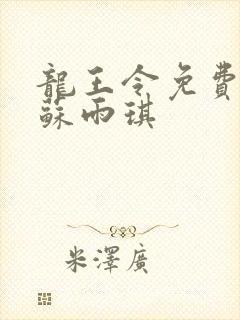 龍王令免費
蘇雨琪
米澤廣